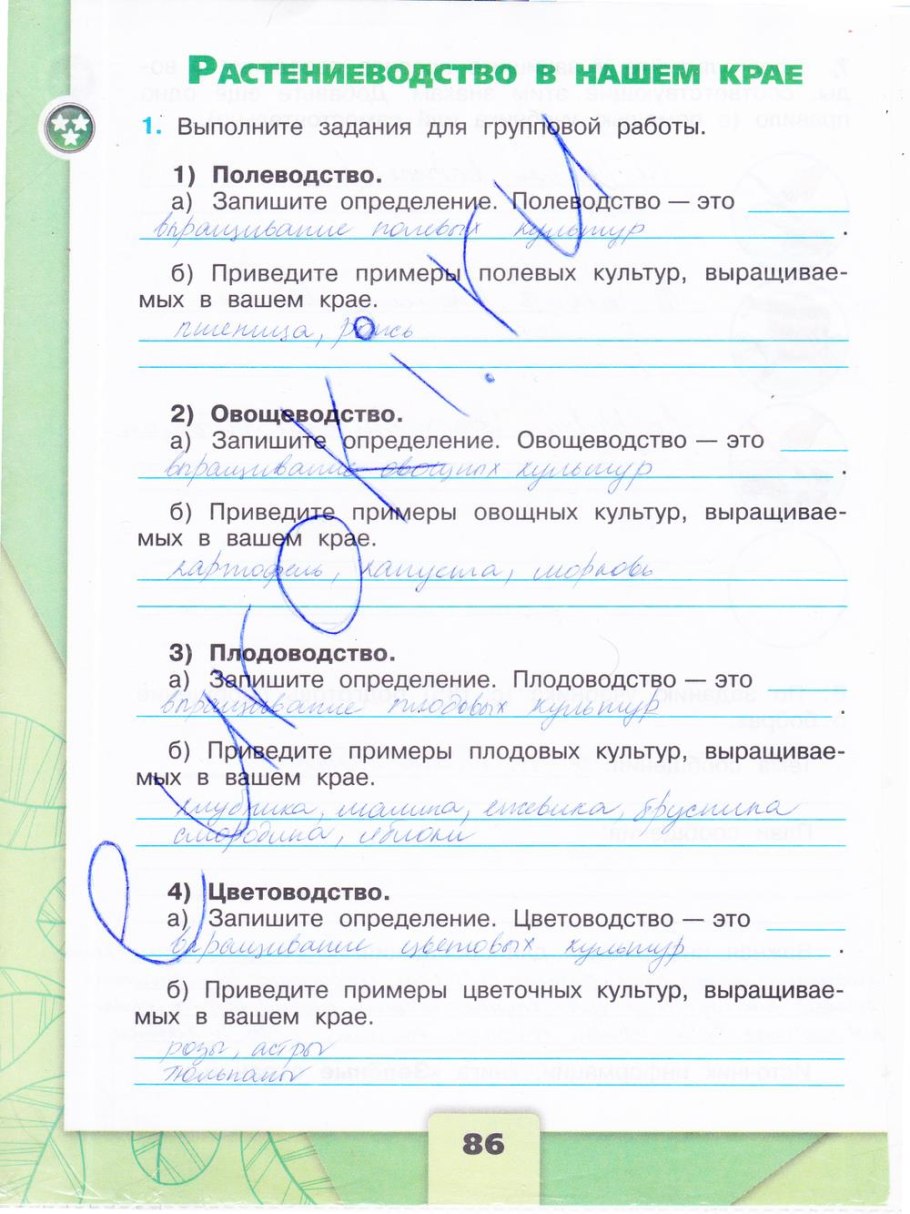 РАСТЕНИЕВОДСТВО В НАШЕМ КРАЕ
1. Выполните задания для групповой работы.
1) Полеводство.
а) Запишите определение. Полеводство — это
выращивание полевых культур .
б) Приведите примеры полевых культур, выращивае-
мых в вашем крае.
пшеница, рожь
2) Овощеводство.
а) Запишите определение. Овощеводство — это
выращивание овощных культур .
б) Приведите примеры овощных культур, выращивае-
мых в вашем крае.
картофель, капуста, морковь
3) Плодоводство.
а) Запишите определение. Плодоводство — это
выращивание плодовых культур .
б) Приведите примеры плодовых культур, выращивае-
мых в вашем крае.
клубника, малина, ежевика, брусника
смородина, яблоки
4) Цветоводство.
а) Запишите определение. Цветоводство — это
выращивание цветовых культур .
б) Приведите примеры цветочных культур, выращивае-
мых в вашем крае.
розы, астры
тюльпаны
86
euroki.ru